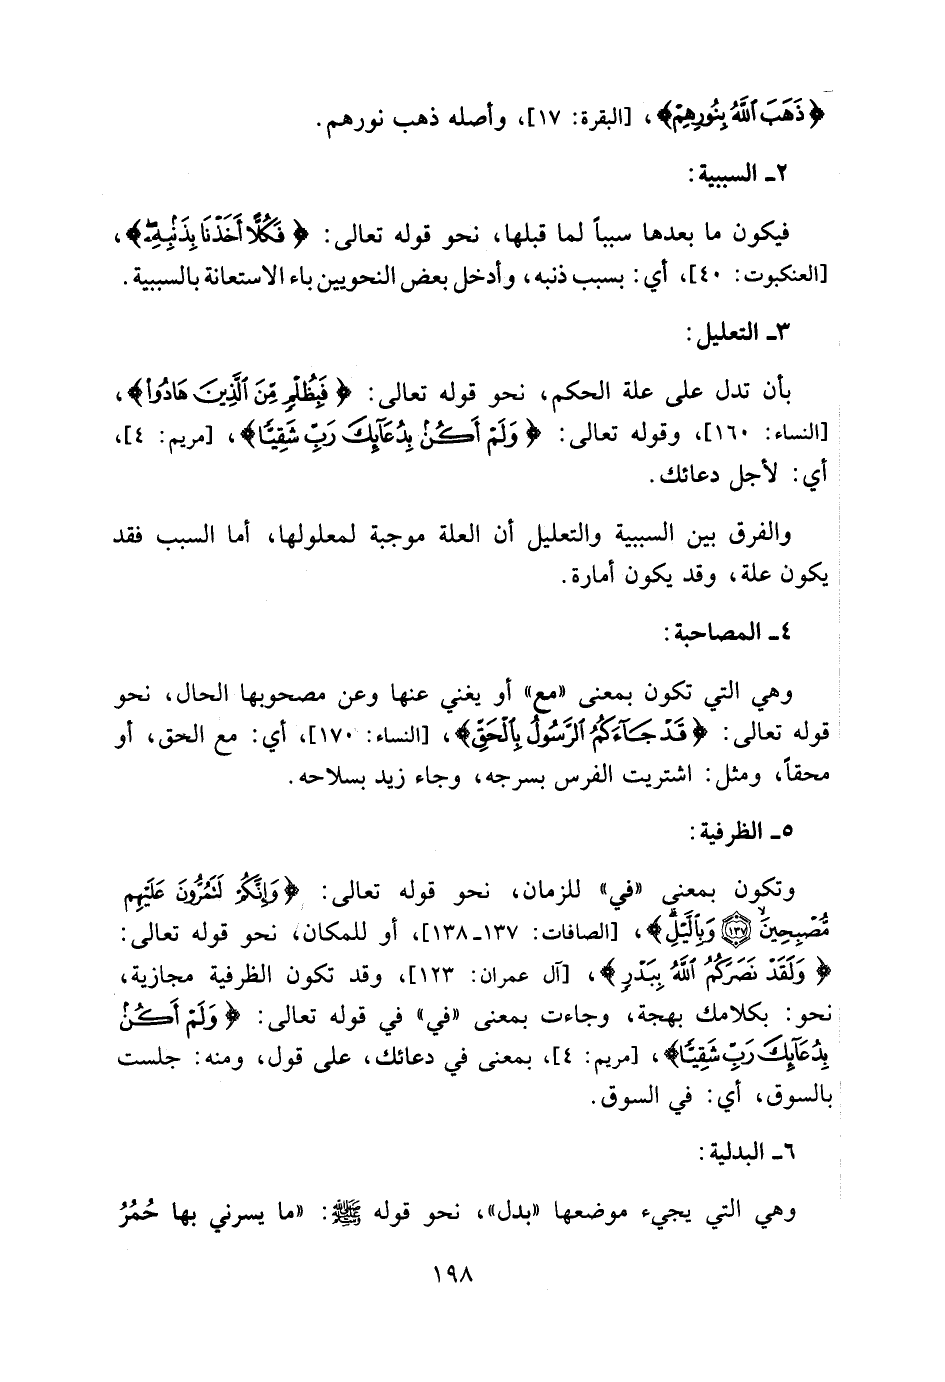 ﴿ذَهَبَ ٱللَّهُ بِنُورِهِمْ﴾، [البقرة: ١٧]، وأصله ذهب نورهم.
٢ـ السببية:
فيكون ما بعدها سبباً لما قبلها، نحو قوله تعالى: ﴿فَكُلًّا أَخَذْنَا بِذَنۢبِهِۦ﴾،
[العنكبوت: ٤٠]، أي: بسبب ذنبه، وأدخل بعض النحويين باء الاستعانة بالسببية.
٣ـ التعليل:
بأن تدل على علة الحكم، نحو قوله تعالى: ﴿فَبِظُلْمٍ مِّنَ ٱلَّذِينَ هَادُوا۟﴾،
[النساء: ١٦٠]، وقوله تعالى: ﴿وَلَمْ أَكُنۢ بِدُعَآئِكَ رَبِّ شَقِيًّا﴾، [مريم: ٤]،
أي: لأجل دعائك.
والفرق بين السببية والتعليل أن العلة موجبة لمعلولها، أما السبب فقد
يكون علة، وقد يكون أمارة.
٤ـ المصاحبة:
وهي التي تكون بمعنى «مع» أو يغني عنها وعن مصحوبها الحال، نحو
قوله تعالى: ﴿قَدْ جَآءَكُمُ ٱلرَّسُولُ بِٱلْحَقِّ﴾، [النساء: ١٧٠]، أي: مع الحق، أو
محقاً، ومثل: اشتريت الفرس بسرجه، وجاء زيد بسلاحه.
٥ـ الظرفية:
وتكون بمعنى «في» للزمان، نحو قوله تعالى: ﴿وَإِنَّكُمْ لَتَمُرُّونَ عَلَيْهِم
مُّصْبِحِينَ ١٣٧ وَبِٱلَّيْلِ﴾، [الصافات: ١٣٧ـ١٣٨]، أو للمكان، نحو قوله تعالى:
﴿وَلَقَدْ نَصَرَكُمُ ٱللَّهُ بِبَدْرٍ﴾، [آل عمران: ١٢٣]، وقد تكون الظرفية مجازية،
نحو: بكلامك بهجة، وجاءت بمعنى «في» في قوله تعالى: ﴿وَلَمْ أَكُنۢ
بِدُعَآئِكَ رَبِّ شَقِيًّا﴾، [مريم: ٤]، بمعنى في دعائك، على قول، ومنه: جلست
بالسوق، أي: في السوق.
٦ـ البدلية:
وهي التي يجيء موضعها «بدل»، نحو قوله ﷺ: «ما يسرني بها حُمُرُ
١٩٨